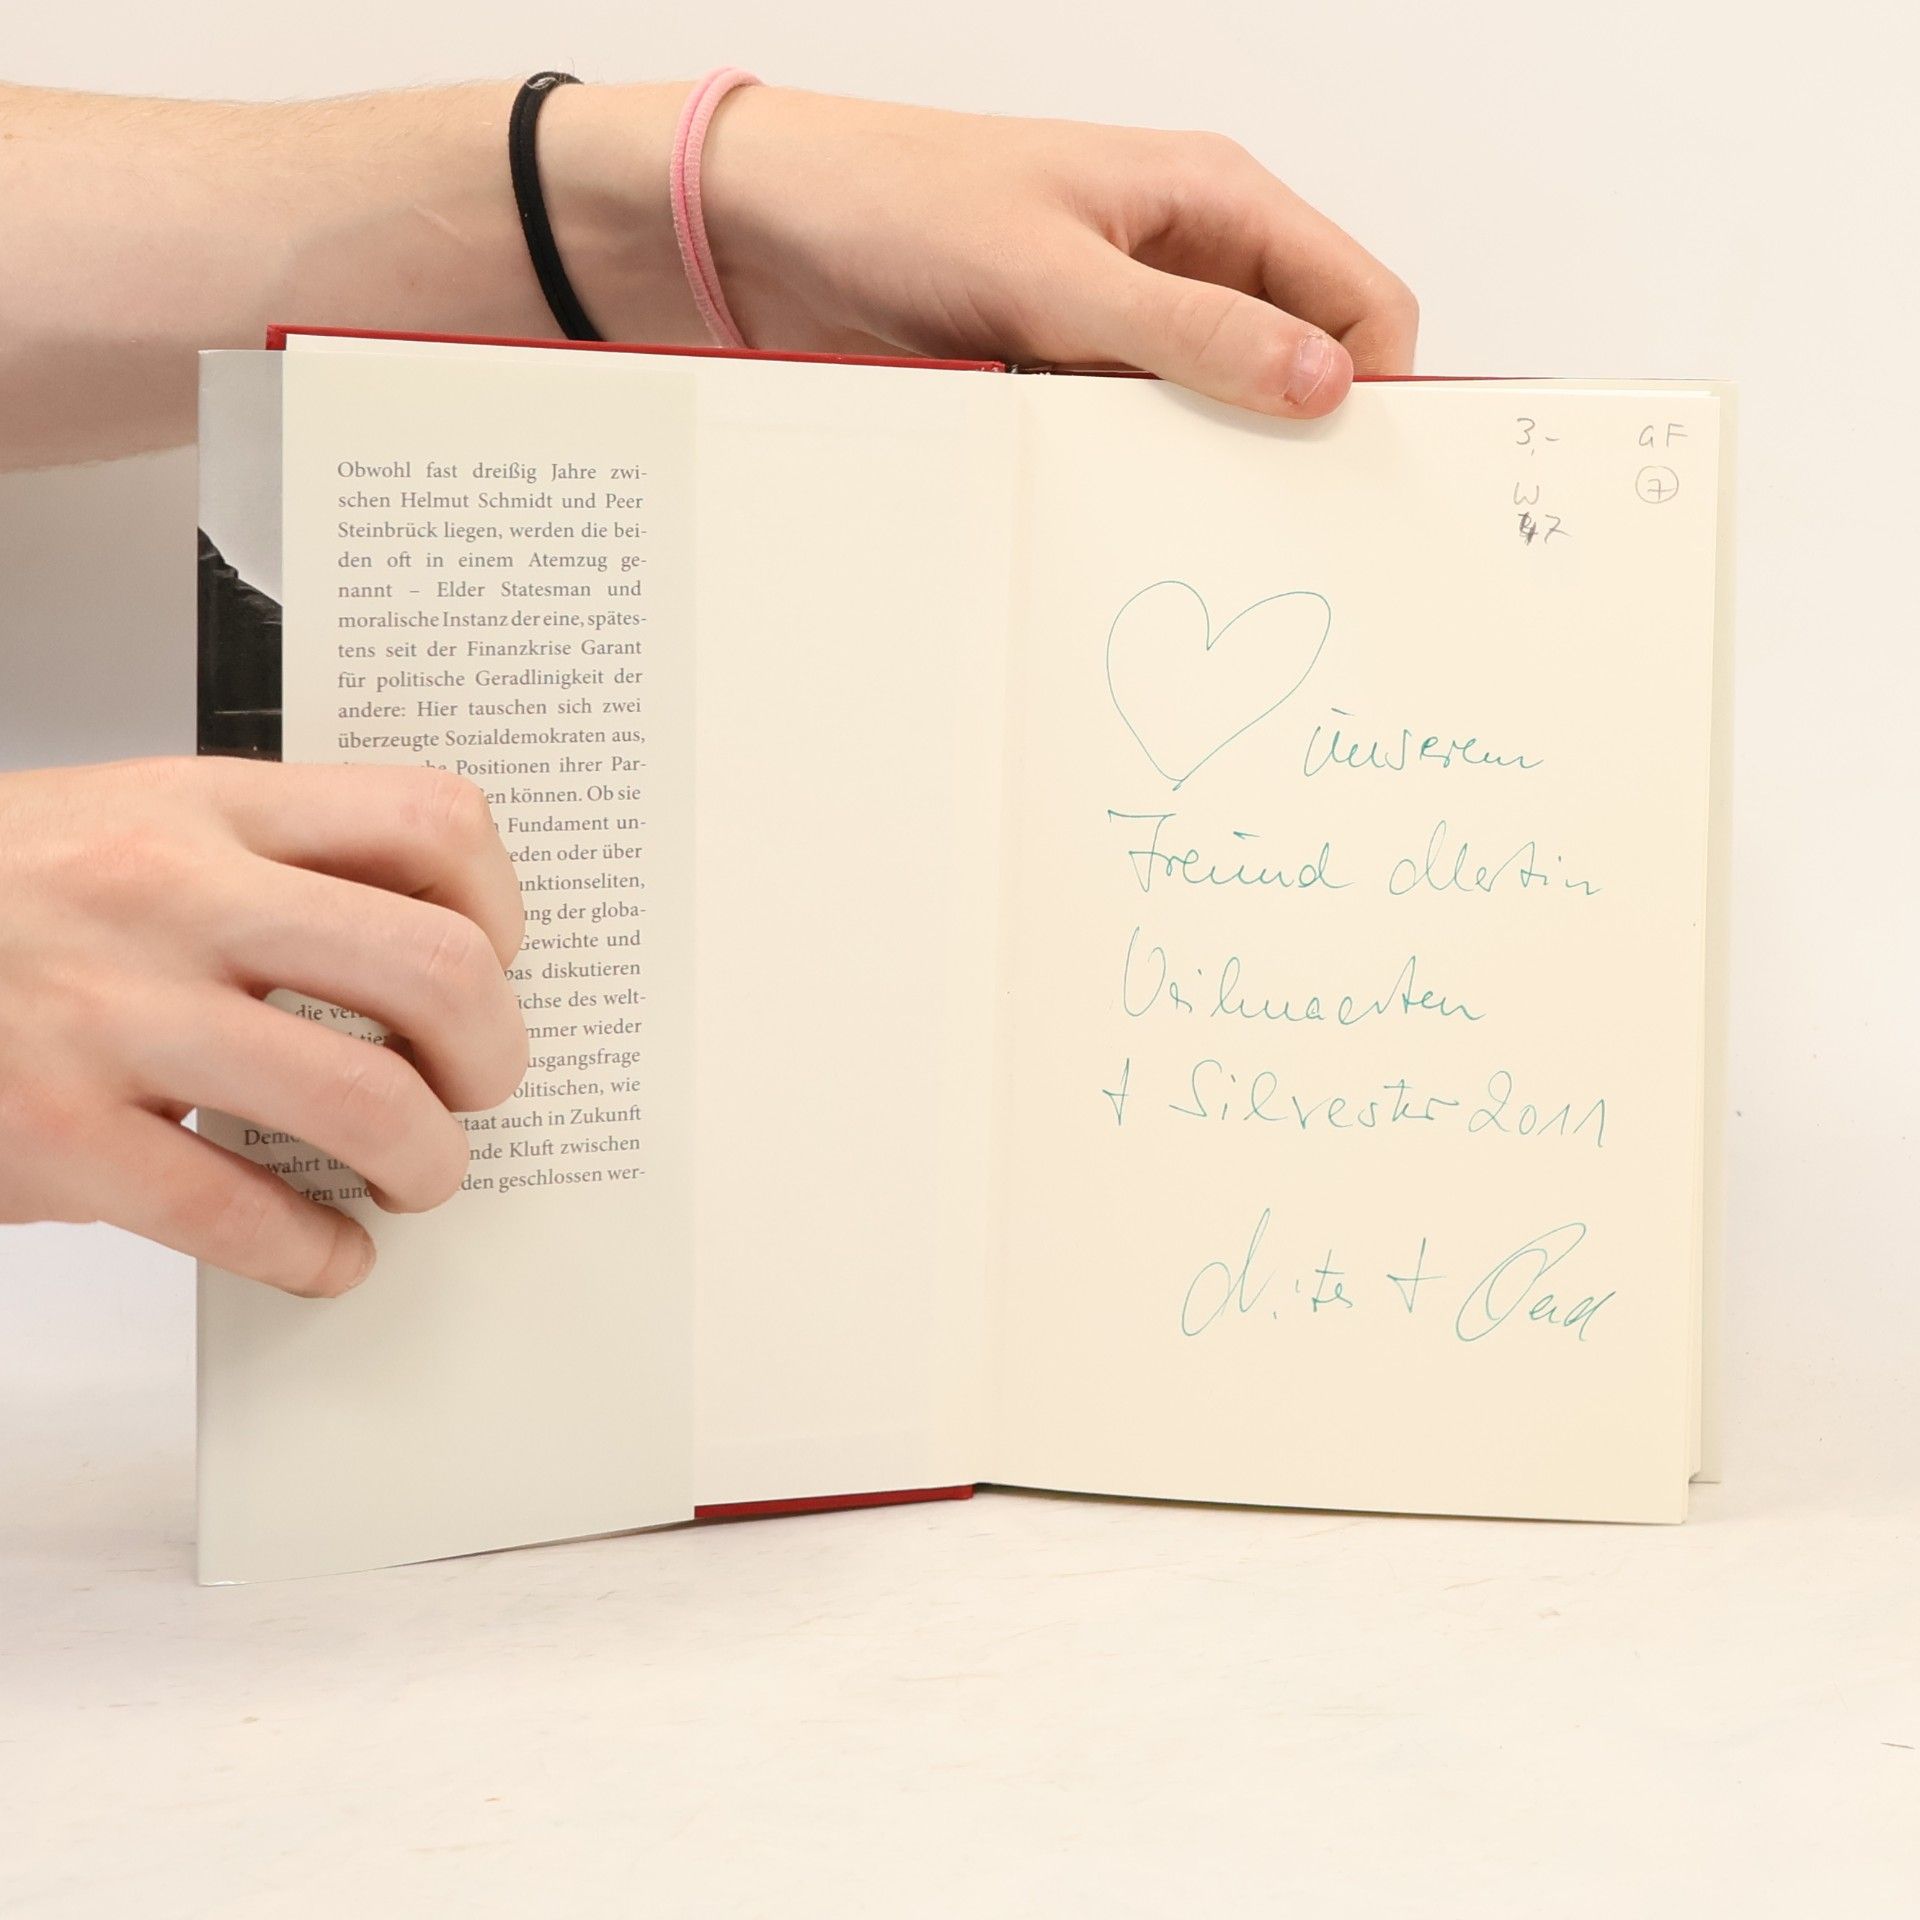 Obwohl fast dreißig Jahre zwi-
schen Helmut Schmidt und Peer
Steinbrück liegen, werden die bei-
den oft in einem Atemzug ge-
nannt – Elder Statesman und
moralische Instanz der eine, spätes-
tens seit der Finanzkrise Garant
für politische Geradlinigkeit der
andere: Hier tauschen sich zwei
überzeugte Sozialdemokraten aus,
Positionen ihrer Par-
können. Ob sie
Fundament un-
oder über
der globa-
Gewichte und
diskutieren
des welt-
wieder
wie
auch in Zukunft
Kluft zwischen
geschlossen wer-
die
3,-
GF
W
7
47
Unserem
Freund Martin
Weihnachten
+ Silvester 2011
+